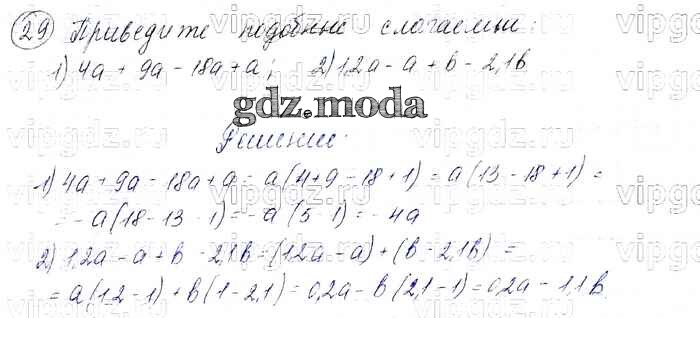 29 Приведите подобные слагаемые:
1) 4a + 9a - 18a + a; 2) 1,2a - a + b - 2,1b
gdz.moda
Решение:
1) 4a + 9a - 18a + a = a(4+9-18+1) = a(13-18+1) =
= -a(18-13-1) = -a(5-1) = -4a
2) 1,2a - a + b - 2,1b = (1,2a - a) + (b - 2,1b) =
= a(1,2-1) + b(1-2,1) = 0,2a - b(2,1-1) = 0,2a - 1,1b